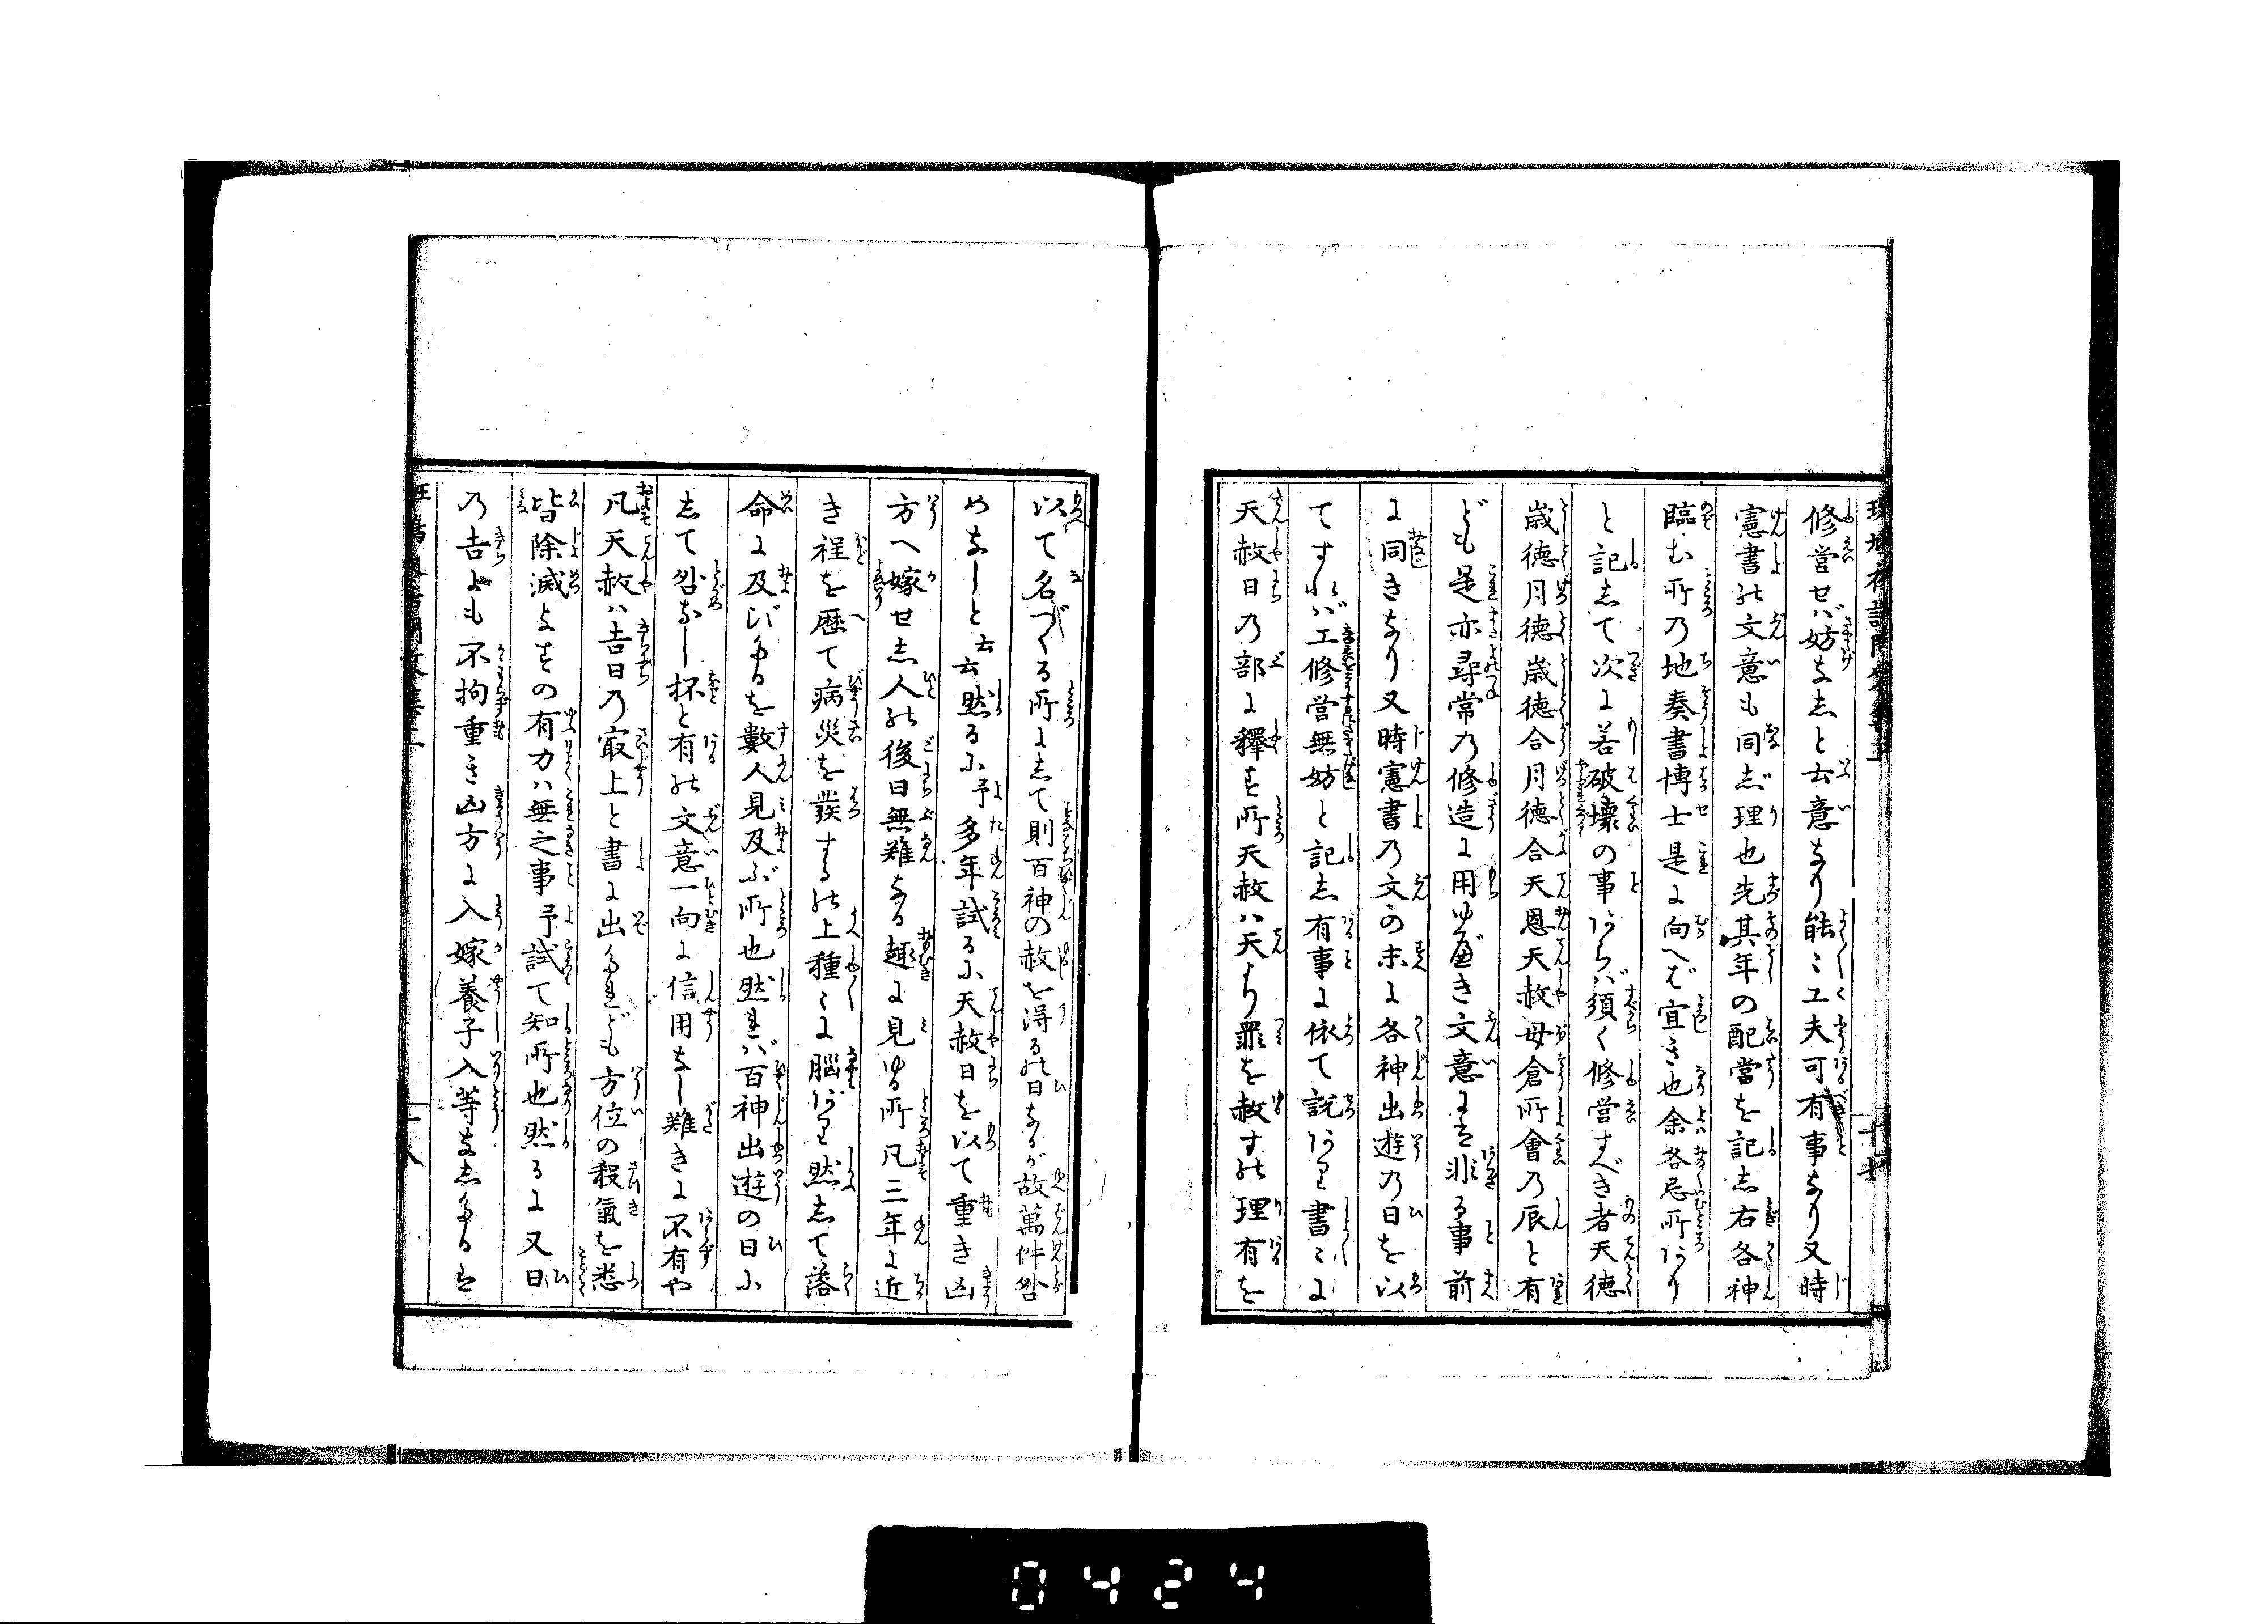 修営せバ妨なしと云意なり能々工夫可有事なり又時
憲書の文意も同じ理也先其年の配當を記し右各神
臨む所の地奏書博士是に向へば宜き也余各忌所あり
と記して次に若破壊の事あらバ須く修営すべき者天徳
歳徳月徳歳徳合月徳合天恩天赦母倉所會の辰と有
ども是亦尋常の修造に用ゆべき文意に非る事前
に同きなり又時憲書の文の末に各神出遊の日を以
てすれバ工修営無妨と記し有事に依て説あり書々に
天赦日の部に釋す所天赦ハ天より罪を赦すの理有を
以て名づくる所にして則百神の赦を得るの日なるが故萬件咎
めなしと云云然るに予多年試るに天赦日を以て重き凶
方へ嫁せし人の後日無難なる趣に見ゆる所凡三年に近
き程を歴て病災を發するの上種々に腦あり然して落
命に及びたるを數人見及ぶ所也然れバ百神出遊の日に
して咎なし抔と有の文意一向に信用なし難きに不有や
凡天赦ハ吉日の最上と書に出たれども方位の殺氣を悉
皆除滅よすの有力ハ無之事予試て知所也然るに又日
の吉にも不拘重き凶方に入嫁養子入等なしたるに
十七
十八
0424